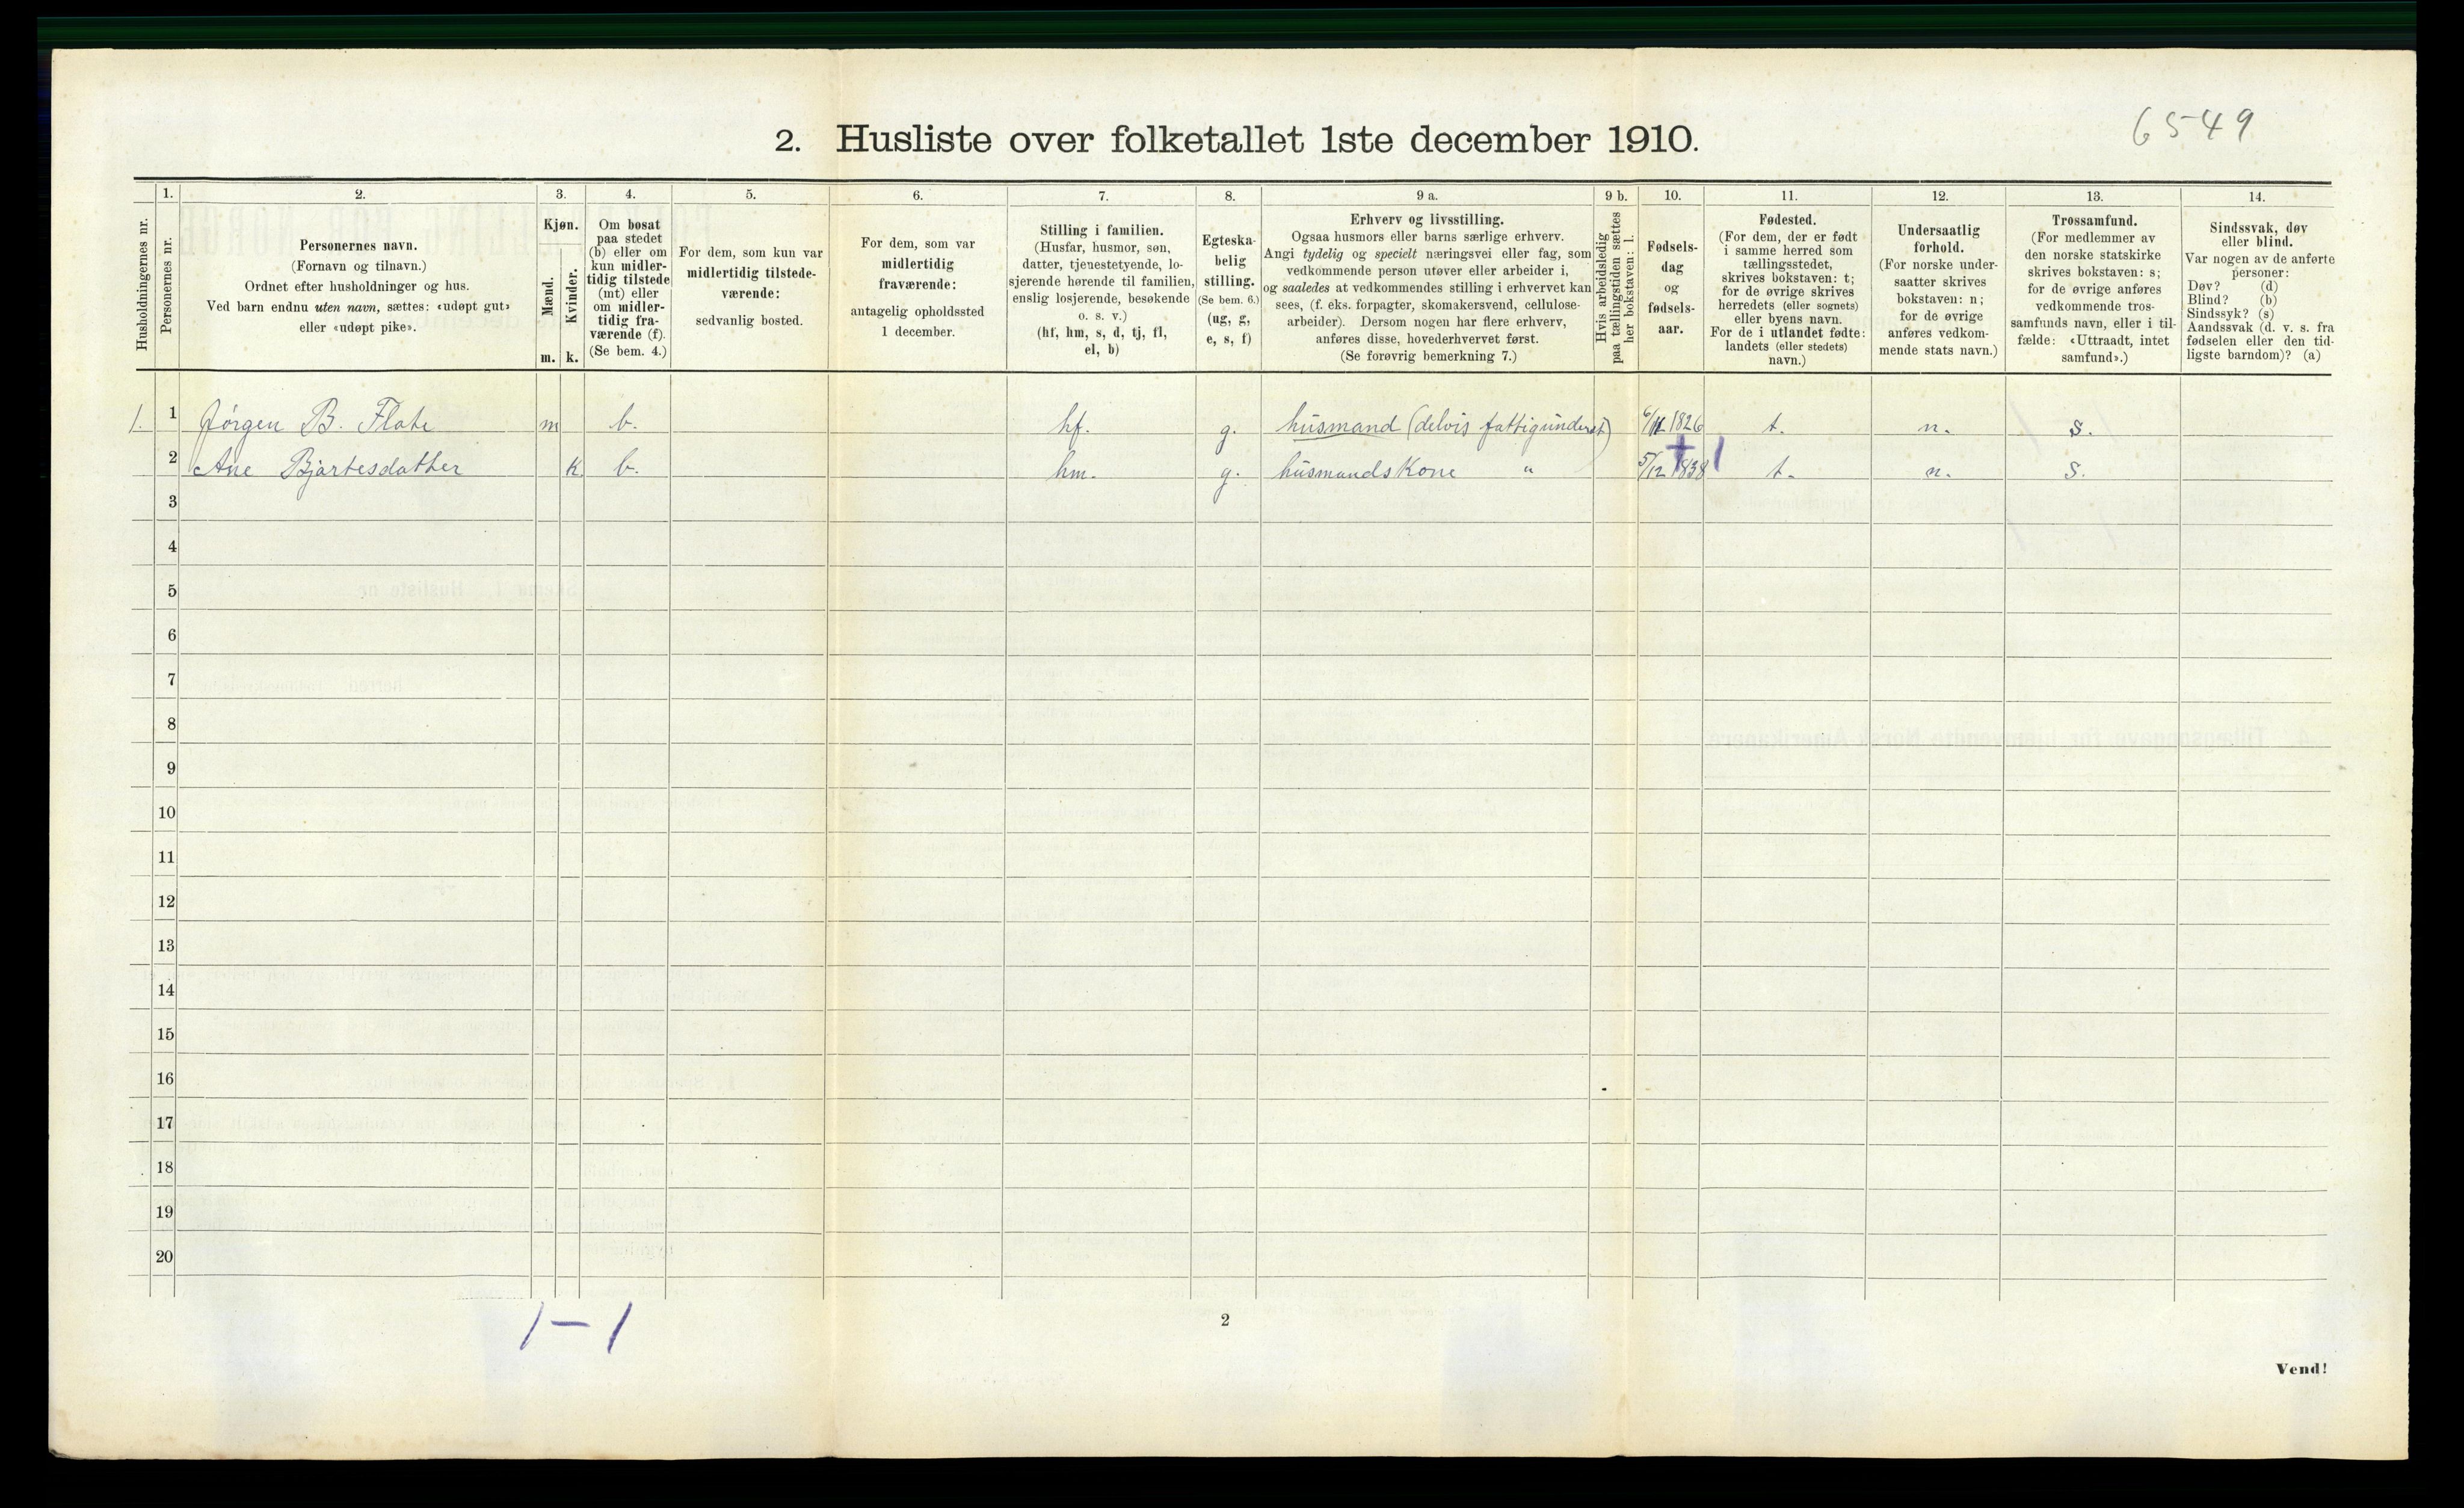 6549
2. Husliste over folketallet 1ste december 1910.
Husholdningernes nr.
1.
Personernes nr.
2.
Personernes navn.
(Fornavn og tilnavn.)
Ordnet efter husholdninger og hus.
Ved barn endnu uten navn, sættes: «udøpt gut»
eller «udøpt pike».
3.
Kjøn.
Mænd.
Kvinder.
m. k.
4.
Om bosat
paa stedet
(b) eller om
kun midler-
tidig tilstede
(mt) eller
om midler-
tidig fra-
værende (f).
(Se bem. 4.)
5.
For dem, som kun var
midlertidig tilstede-
værende:
sedvanlig bosted.
6.
For dem, som var
midlertidig
fraværende:
antagelig opholdssted
1 december.
7.
Stilling i familien.
(Husfar, husmor, søn,
datter, tjenestetyende, lo-
sjerende hørende til familien,
enslig losjerende, besøkende
o. s. v.)
(hf, hm, s, d, tj, fl,
el, b)
8.
Egteska-
belig
stilling.
(Se bem. 6.)
(ug, g,
e, s, f)
9 a.
Erhverv og livsstilling.
Ogsaa husmors eller barns særlige erhverv.
Angi tydelig og specielt næringsvei eller fag, som
vedkommende person utøver eller arbeider i,
og saaledes at vedkommendes stilling i erhvervet kan
sees, (f. eks. forpagter, skomakersvend, cellulose-
arbeider). Dersom nogen har flere erhverv,
anføres disse, hovederhvervet først.
(Se forøvrig bemerkning 7.)
9 b.
Hvis arbeidsledig
paa tællingstiden sættes
her bokstaven: l.
10.
Fødsels-
dag
og
fødsels-
aar.
11.
Fødested.
(For dem, der er født
i samme herred som
tællingsstedet,
skrives bokstaven: t;
for de øvrige skrives
herredets (eller sognets)
eller byens navn.
For de i utlandet fødte:
landets (eller stedets)
navn.)
12.
Undersaatlig
forhold.
(For norske under-
saatter skrives
bokstaven: n;
for de øvrige
anføres vedkom-
mende stats navn.)
13.
Trossamfund.
(For medlemmer av
den norske statskirke
skrives bokstaven: s;
for de øvrige anføres
vedkommende tros-
samfunds navn, eller i til-
fælde: «Uttraadt, intet
samfund».)
14.
Sindssvak, døv
eller blind.
Var nogen av de anførte
personer:
Døv? (d)
Blind? (b)
Sindssyk? (s)
Aandssvak (d. v. s. fra
fødselen eller den tid-
ligste barndom)? (a)
1. 1 Jørgen B. Flate m b. hf. g. husmand (delvis fattigunderst) 6/11 1826 t. n. s.
2 Ane Bjartesdatter k b. hm. g. husmandskone " 5/12 1838 t. n. s.
+ 1
3
4
5
6
7
8
9
10
11
12
13
14
15
16
17
18
19
20
1 – 1
2
Vend!